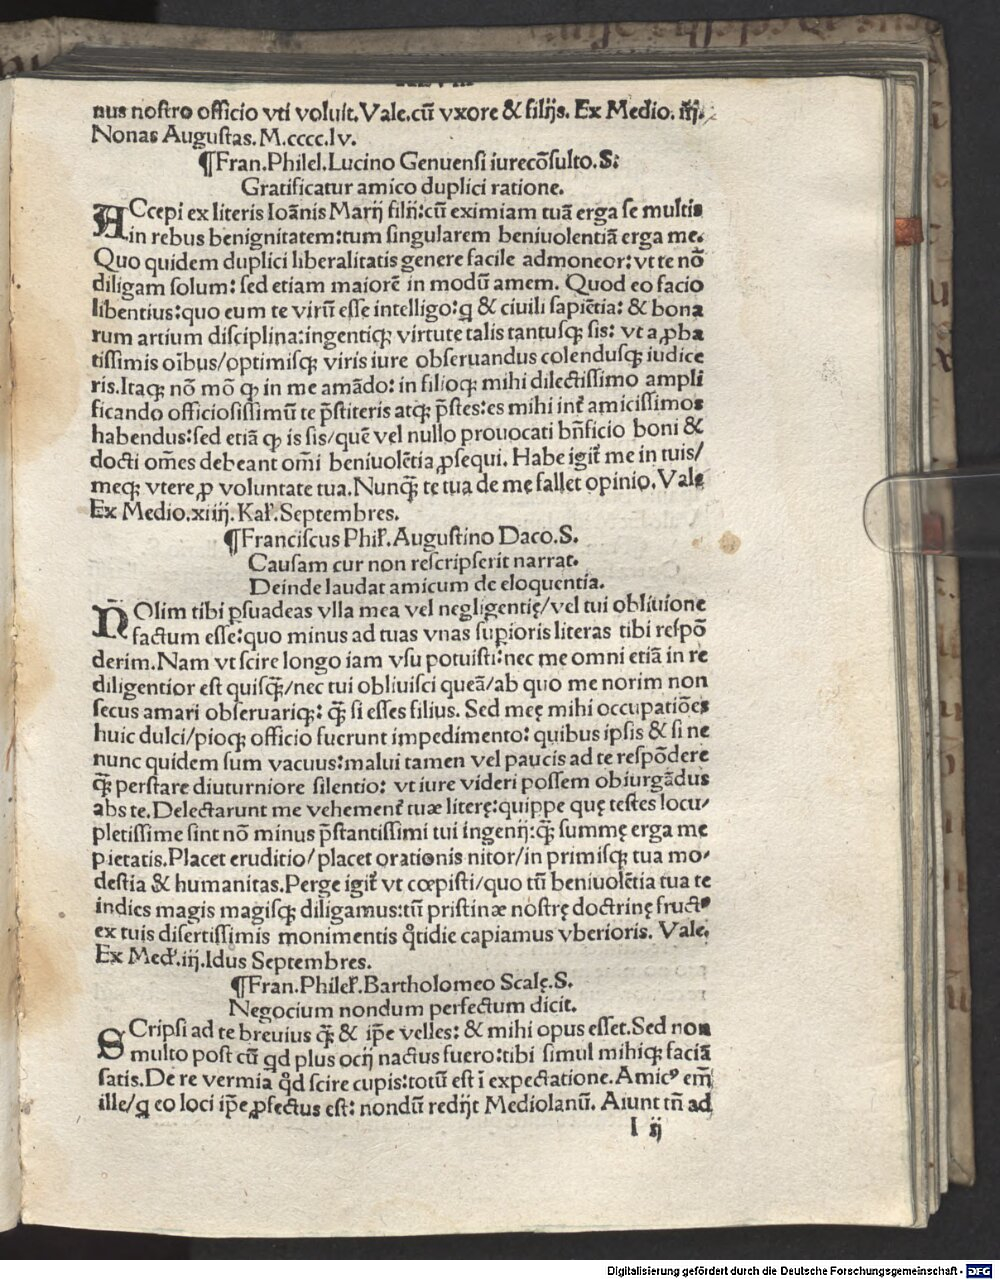 nus nostro officio vti voluit. Vale.cū vxore & filijs. Ex Medio. iiij.
Nonas Augustas. M.cccc.lv.
¶Fran.Philel.Lucino Genuensi iurecōsulto.S:
Gratificatur amico duplici ratione.
ACcepi ex literis Ioānis Marij filij:cū eximiam tuā erga se multis
in rebus benignitatem:tum singularem beniuolentiā erga me.
Quo quidem duplici liberalitatis genere facile admoneor:vt te nō
diligam solum: sed etiam maiorē in modū amem. Quod eo facio
libentius:quo eum te virū esse intelligo:q̄ & ciuili sapiētia: & bona
rum artium disciplina:ingentiqꝫ virtute talis tantusqꝫ sis: vt a ꝓba
tissimis oībus/optimisqꝫ viris iure obseruandus colendusqꝫ iudice
ris.Itaqꝫ nō mō ꝙ in me amādo: in filioqꝫ mihi dilectissimo ampli
ficando officiosissimū te p̄stiteris atqꝫ p̄stes:es mihi int̄ amicissimos
habendus:sed etiā ꝙ is sis/quē vel nullo prouocati bn̄ficio boni &
docti om̄es debeant om̄i beniuolētia ꝓsequi. Habe igit̄ me in tuis/
meqꝫ vtere ꝓ voluntate tua.Nunqꝫ̄ te tua de me fallet opinio. Vale
Ex Medio.xiiij. Kal̕.Septembres.
¶Franciscus Phil̕. Augustino Daco.S.
Causam cur non rescripserit narrat.
Deinde laudat amicum de eloquentia.
NOlim tibi ꝑsuadeas vlla mea vel negligentię/vel tui obliuione
factum esse:quo minus ad tuas vnas suꝑioris literas tibi respō
derim.Nam vt scire longo iam vsu potuisti:nec me omni etiā in re
diligentior est quisqꝫ̄/nec tui obliuisci queā/ab quo me norim non
secus amari obseruariqꝫ: qꝫ̄ si esses filius. Sed meę mihi occupatiōes
huic dulci/pioqꝫ officio fuerunt impedimento: quibus ipsis & si ne
nunc quidem sum vacuus:malui tamen vel paucis ad te respōdere
qꝫ̄ perstare diuturniore silentio: vt iure videri possem obiurgādus
abs te.Delectarunt me vehement̄ tuæ literę:quippe quę testes locu/
pletissime sint nō minus p̄stantissimi tui ingenij:qꝫ̄ summę erga me
pietatis.Placet eruditio/placet orationis nitor/in primisqꝫ tua mo/
destia & humanitas.Perge igit̄ vt cœpisti/quo tū beniuolētia tua te
indies magis magisqꝫ diligamus:tū pristinæ nostrę doctrinę fructꝰ
ex tuis disertissimis monimentis qͦtidie capiamus vberioris. Vale.
Ex Med̕.iij.Idus Septembres.
¶Fran.Philel̕.Bartholomeo Scalę.S.
Negocium nondum perfectum dicit.
SCripsi ad te breuius qꝫ̄ & ip̄e velles: & mihi opus esset.Sed non
multo post cū qd plus ocij nactus fuero:tibi simul mihiqꝫ faciā
satis.De re vermia qͦd scire cupis:totū est ī expectatione.Amicꝰ em̄
ille/q̄ eo loci ip̄e ꝓfectus est: nondū redijt Mediolanū. Aiunt tn̄ ad
I ij
Digitalisierung gefördert durch die Deutsche Forschungsgemeinschaft - DFG